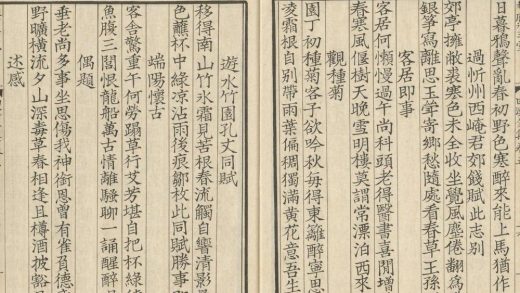 日暮鴉聲亂春初野色寒醉來能上馬猶作
過忻州西崦君郊餞賦此志別
郊亭擁敝裘寒色未全收坐覺風塵倦翻爲
銀箏寫離思玉聲寄鄉愁隨處看春草王孫
客居即事
客居何懶慢過午尚科頭老得醫書喜閒增
春寒風偃樹天晚雪明樓莫謂常漂泊西來
觀種菊
園丁初種菊客子欲吟秋每得東籬醉寧思
凌霜根自别帶雨葉偏稠獨滿黄花意吾生
遊水竹園孔丈同賦
移得南山竹氷霜見苦根春流觸自響清影
色籬杯中綠涼沾雨後痕鄒枚此同賦勝事
端陽懷古
客舍驚重午何勞躡草行艾芳堪自把杯緑
魚腹三閭恨龍船萬古情離騷聊一誦醒醉
偶題
垂老尚多事坐思傷我神銜恩曾有雀負德
野曠橫流夕山深毒草春相逢且樽酒披豁
述感